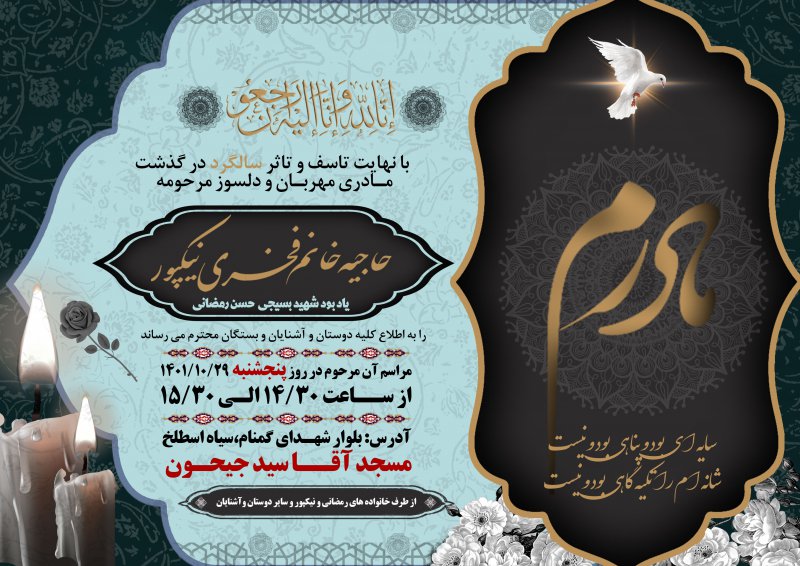 انا لله و انا الیه راجعون
با نهایت تاسف و تاثر سالگرد در گذشت
مـادری مهربان و دلسوز مرحومه
حاجیه خانم فخری نیکپور
یاد بود شهید بسیجی حسن رمضانی
را به اطلاع کلیه دوستان و آشنایان و بستگان محترم می رساند
مراسم آن مرحوم در روز پنجشنبه ۱۴۰۱/۱۰/۲۹
از ساعت ۱۴/۳۰ الی ۱۵/۳۰
آدرس: بلوار شهدای گمنام،سیاه اسطلخ
مسجد آقا سید جیحون
از طرف خانواده های رمضانی و نیکپور و سایر دوستان وآشنایان
مادرم
سایه ای بود و پناهی بود و نیست
شانه ام را تکیه گاهی بود و نیست